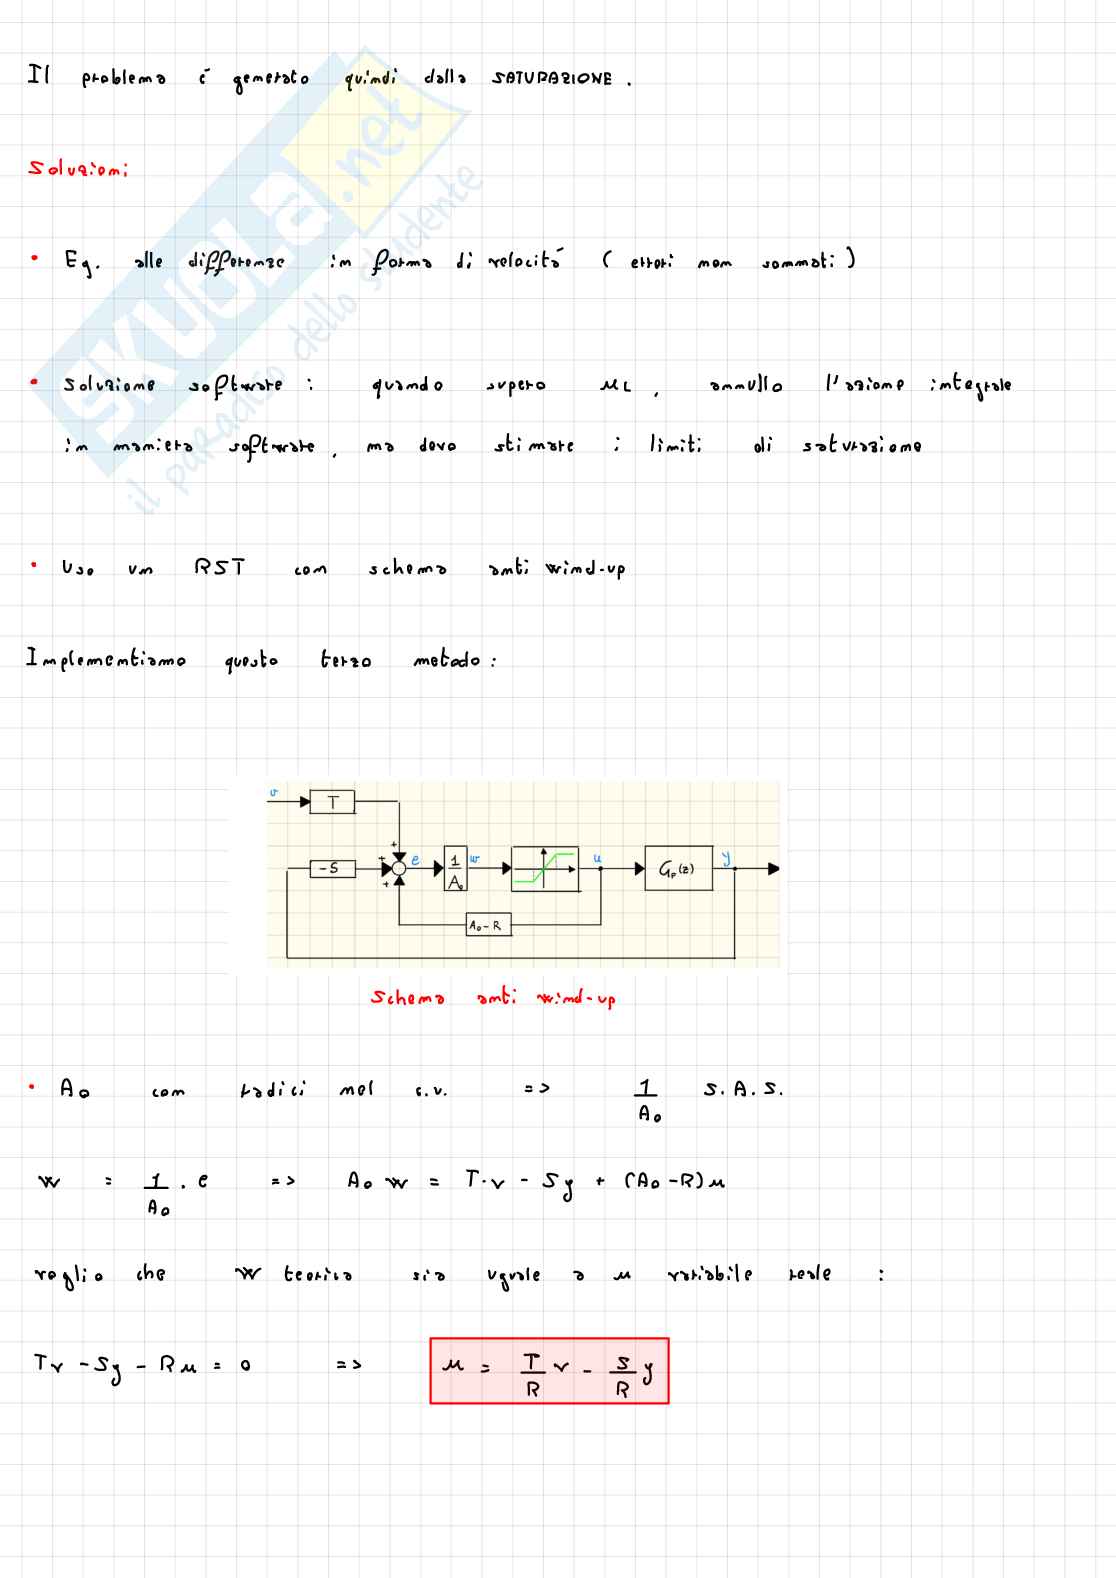 Il problema è generato quindi dalla SATURAZIONE.
Soluzioni
• Eq. alle differenze in forma di velocità (errori non sommati)
• Soluzione software : quando supero uL, annullo l'azione integrale
in maniera software, ma devo stimare i limiti di saturazione
• Uso un RST con schema anti wind-up
Implementiamo questo terzo metodo:
v T
+
-S + e 1/A₀ w u Gₚ(z) y
+
A₀-R
Schema anti wind-up
• A₀ con radici nel c.v. => 1/A₀ S.A.S.
w = 1/A₀ · e => A₀ w = T·v - Sy + (A₀-R)u
voglio che w teorica sia uguale a u variabile reale :
Tv - Sy - Ru = 0 => u = T/R v - S/R y
SKUOLA.net
il paradiso dello studente